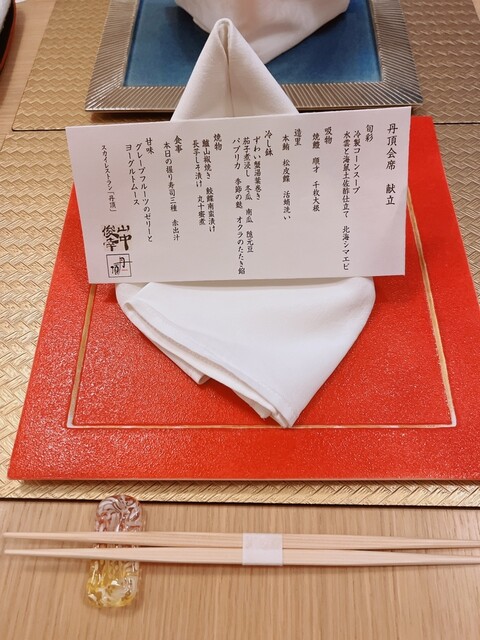 丹頂会席　献立
旬彩
冷製コーンスープ
水雲と海鼠土佐酢仕立て　北海シマエビ
吸物
焼鱧　順才　千枚大根
造里
本鮪　松皮鰈　活蛸洗い
冷し鉢
ずわい蟹湯葉巻き
茄子煮浸し　冬瓜　南瓜　隠元豆
パプリカ　季節の麩　オクラのたたき餡
焼物
鱸山椒焼き　鮫鰈南蛮漬け
長芋しそ漬け　丸十蜜煮
食事
本日の握り寿司三種　赤出汁
甘味
グレープフルーツのゼリーと
ヨーグルトムース
スカイレストラン「丹頂」
山中
俊幸
丹頂